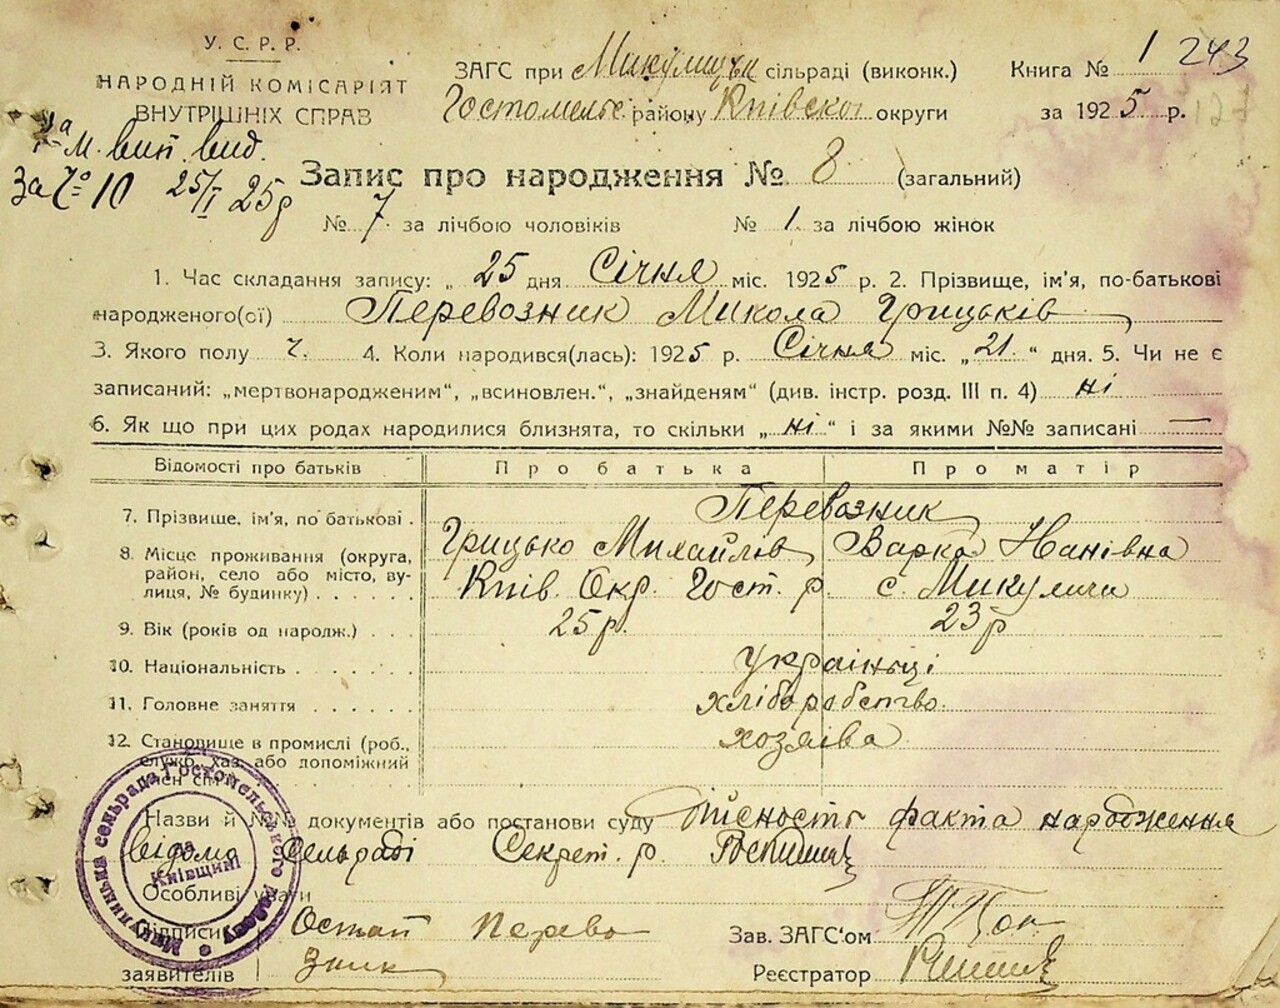 У. С. Р. Р.
НАРОДНІЙ КОМІСАРІЯТ
ВНУТРІШНІХ СПРАВ
ЗАГС при Микулицьк сільраді (виконк.)
Гостомельс. району Київської округи
Книга № 1 243
за 1925 р.
М. вип. вид.
За № 10 25/I 25р
Запис про народження № 8 (загальний)
№ 7. за лічбою чоловіків № 1. за лічбою жінок
1. Час складання запису: „ 25 дня Січня міс. 1925 р. 2. Прізвище, ім'я, по-батькові
народженого(ої) Перевозник Микола Грицьків
3. Якого полу ч. 4. Коли народився(лась): 1925 р. Січня міс. „21.“ дня. 5. Чи не є
записаний: „мертвонародженим“, „всиновлен.“, „знайденям“ (див. інстр. розд. III п. 4) ні
6. Як що при цих родах народилися близнята, то скільки „ ні “ і за якими №№ записані —
Відомості про батьків Про батька Про матір
7. Прізвище, ім'я, по батькові . Перевозник
Грицько Михайлів Варка Іванівна
8. Місце проживання (округа, район, село або місто, вулиця, № будинку) . . . . . Київ. Окр. Гост. р. с. Микуличи
9. Вік (років од народж.) . . . 25р. 23р
10. Національність . . . . . . українці
11. Головне заняття . . . . . . хліборобство.
12. Становище в промислі (роб., служб. хаз. або допоміжний член сім'ї) хозяїва
Назви й №№ документів або постанови суду Дійсность факта народження
відома Сельраді Секрет. р.
Особливі уваги
Підписи заявителів Остап Перевозник
Зав. ЗАГС'ом
Реєстратор
Микулицька сельрада Гостомельського району
на Київщині